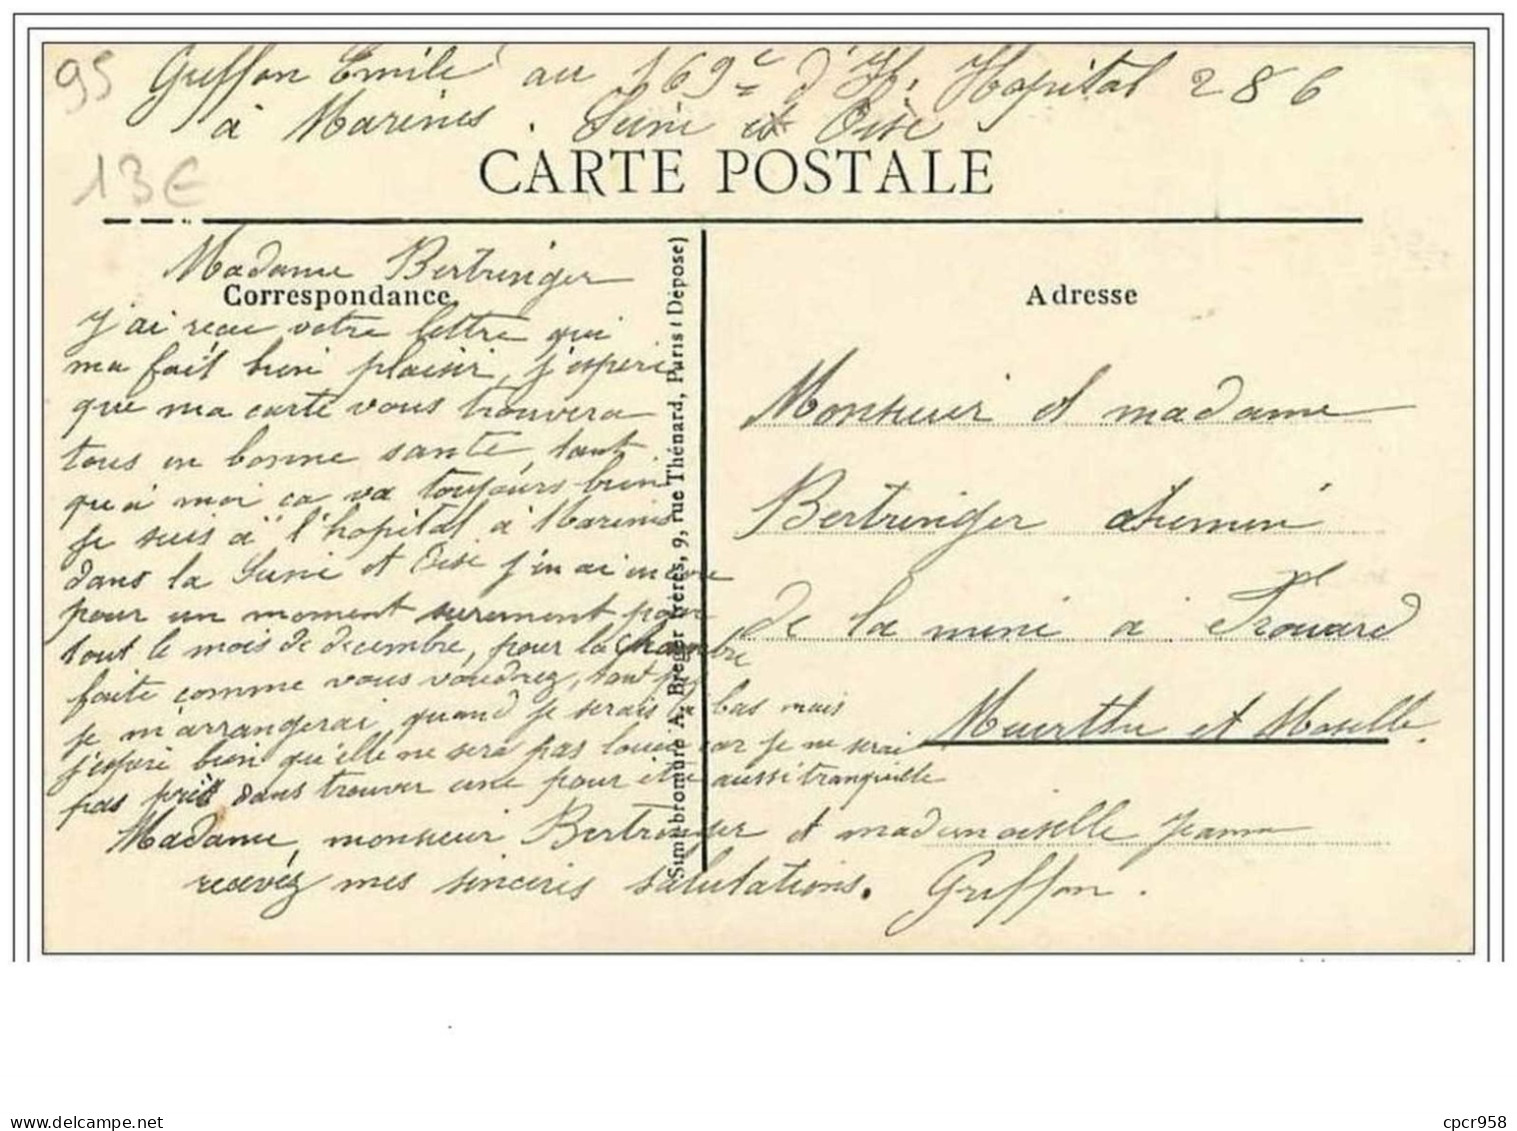 95
Griffon Emile au 169e d'If. Hopital 286
à Marines. Seine et Oise
CARTE POSTALE
13€
Madame Bertringer
Correspondance
J'ai recu votre lettre qui
ma fait bien plaisir, j'espere
que ma carte vous trouvera
tous en bonne santé, tant
qu'a moi ca va toujours bien
je suis à l'hopital à Marines
dans la Seine et Oise j'en ai encore
pour un moment surement pour
tout le mois de decembre, pour la chambre
faite comme vous voudrez, tant pis
je m'arrangerai quand je serais la bas mais
j'espere bien qu'elle ne sera pas louee car je ne serai
pas prêt dans trouver une pour être aussi tranquille
Madame, monsieur Bertringer et mademoiselle Jeanne
recevéz mes sinceres salutations. Griffon.
Simi-bromure A. Breger frères, 9, rue Thénard, Paris (Déposé)
Adresse
Monsieur et madame
Bertringer chemin
de la mine à Frouard
Meurthe et Moselle.
cpcr958